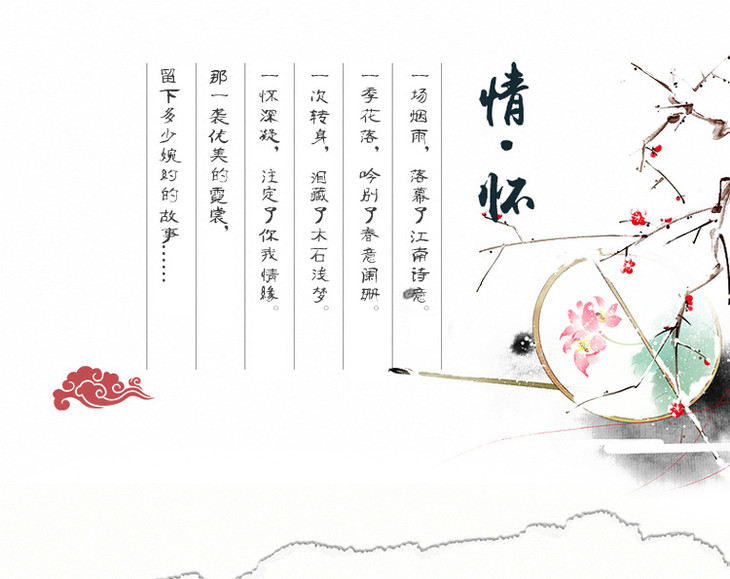 情·怀
一场烟雨，落幕了江南诗意。
一季花落，吟别了春意阑珊。
一次转身，泪藏了木石浅梦。
一怀深凝，注定了你我情缘。
那一袭优美的霓裳，
留下多少婉约的故事……